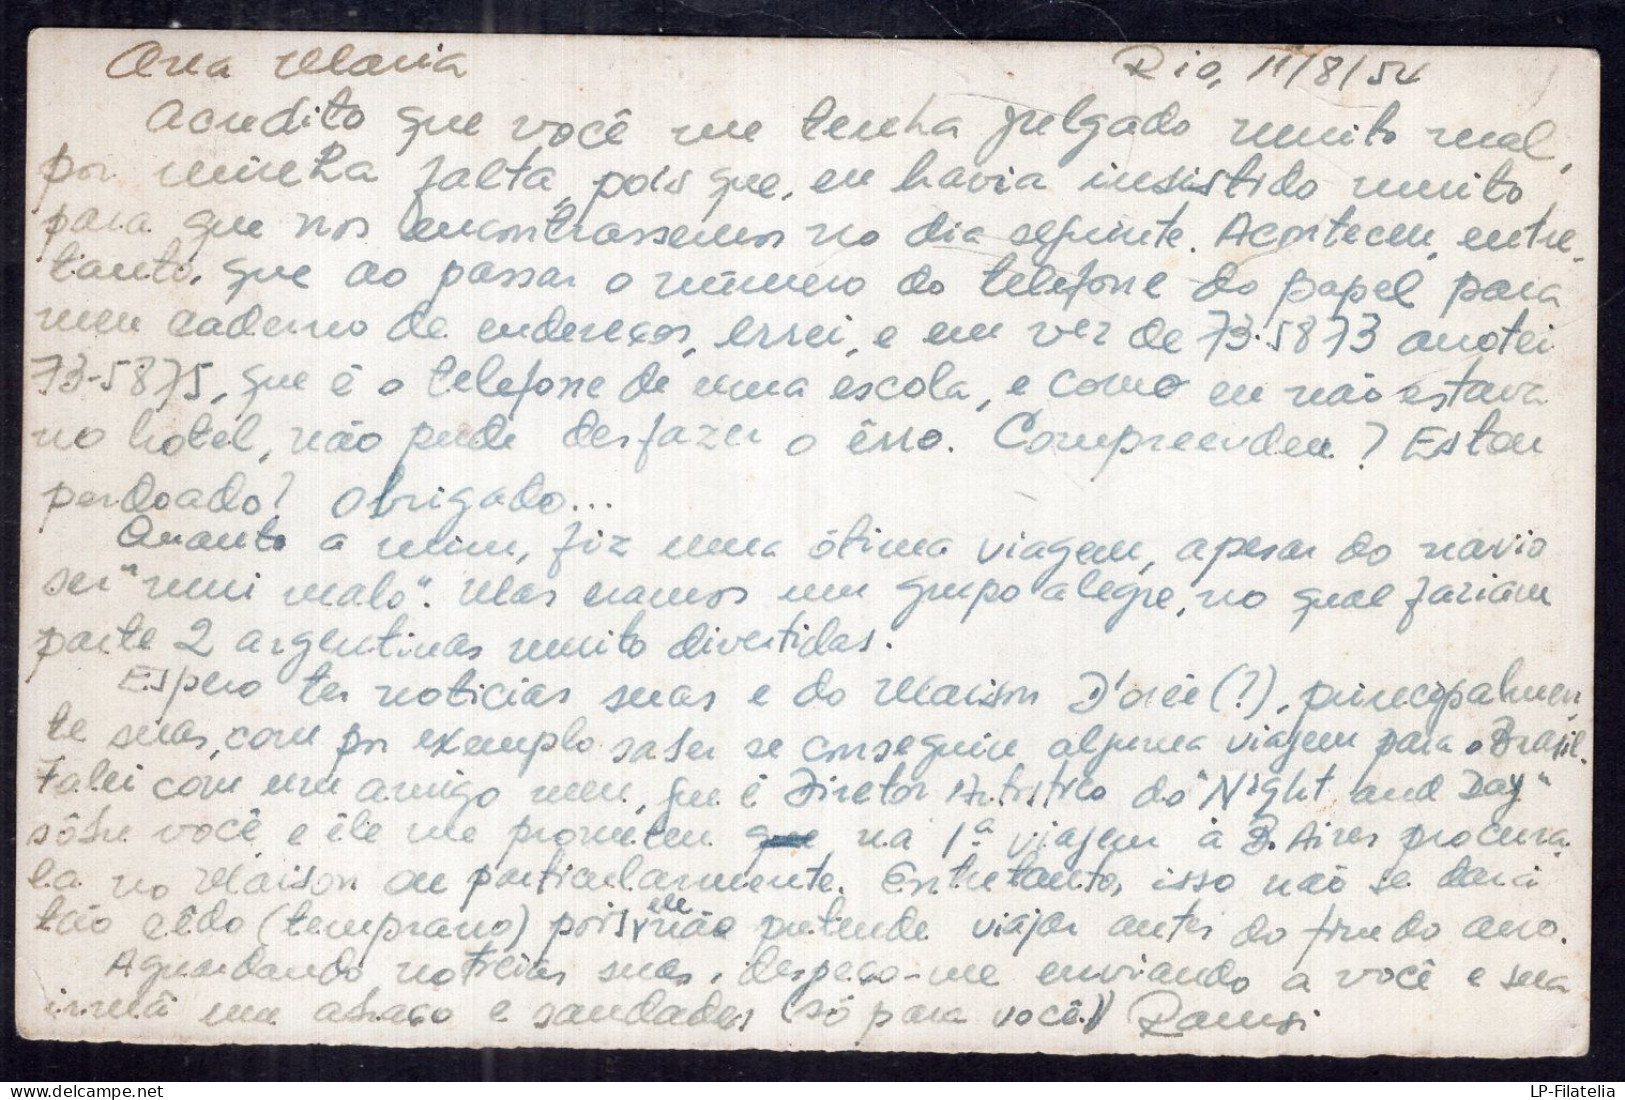 Ana Maria Rio, 11/8/54
Acredito que você me tenha julgado muito mal,
por minha falta, pois que, eu havia insistido muito
para que nos encontrassemos no dia seguinte. Aconteceu, entre-
tanto, que ao passar o número do telefone do papel para
meu caderno de endereços, errei, e em vez de 73-5873 anotei
73-5875, que é o telefone de uma escola, e como eu não estava
no hotel, não pude desfazer o êrro. Compreendeu? Estou
perdoado? Obrigado...
Quanto a mim, fiz uma ótima viagem, apesar do navio
ser "mui malo". Mas eramos um grupo alegre, no qual faziam
parte 2 argentinas muito divertidas.
Espero ter noticias suas e do Maison D'oré (?), principalmen-
te suas, com por exemplo saber se conseguiu alguma viagem para o Brasil.
Falei com um amigo meu, que é Diretor Artistico do "Night and Day"
sôbre você e êle me prometeu que na 1ª viagem à B. Aires procura-
la no Maison ou particularmente. Entretanto, isso não se dará
tão cêdo (temprano) pois ele não pretende viajar antes do fim do ano.
Aguardando noticias suas, despeço-me enviando a você e sua
irmã um abraço e saudades (só para você!)
LP-Filatelia